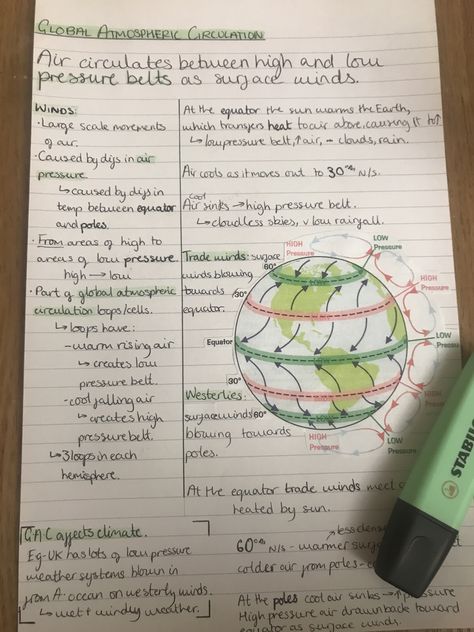 GLOBAL ATMOSPHERIC CIRCULATION
Air circulates between high and low
pressure belts as surface winds.
WINDS:
· Large scale movements
of air.
· Caused by difs in air
pressure.
↳ caused by difs in
temp between equator
and poles.
· From areas of high to
areas of low pressure.
high → low
· Part of global atmospheric
circulation loops/cells.
↳ loops have:
- warm rising air
↳ creates low
pressure belt.
- cool falling air
↳ creates high
pressure belt.
↳ 3 loops in each
hemisphere.
GAC affects climate.
Eg - UK has lots of low pressure
weather systems blown in
from A. ocean on westerly winds.
↳ wet + windy weather.
At the equator the sun warms the Earth,
which transfers heat to air above, causing it to ↑
↳ low pressure belt, ↑ air, = clouds, rain.
Air cools as it moves out to 30° N/S.
cool
Air sinks → high pressure belt.
↳ cloudless skies, v low rainfall.
Trade winds: surface
winds blowing
towards
equator.
Westerlies:
surface winds
blowing towards
poles.
HIGH
Pressure
LOW
Pressure
HIGH
Pressure
60°
30°
Equator
LOW
Pressure
30°
HIGH
60°
HIGH
Pressure
LOW
Pressure
At the equator trade winds meet
heated by sun.
less dense
60° N/S - warmer
colder air from poles -
At the poles cool air sinks → ↑ pressure
High pressure air drawn back toward
equator as surface winds.
STABILO